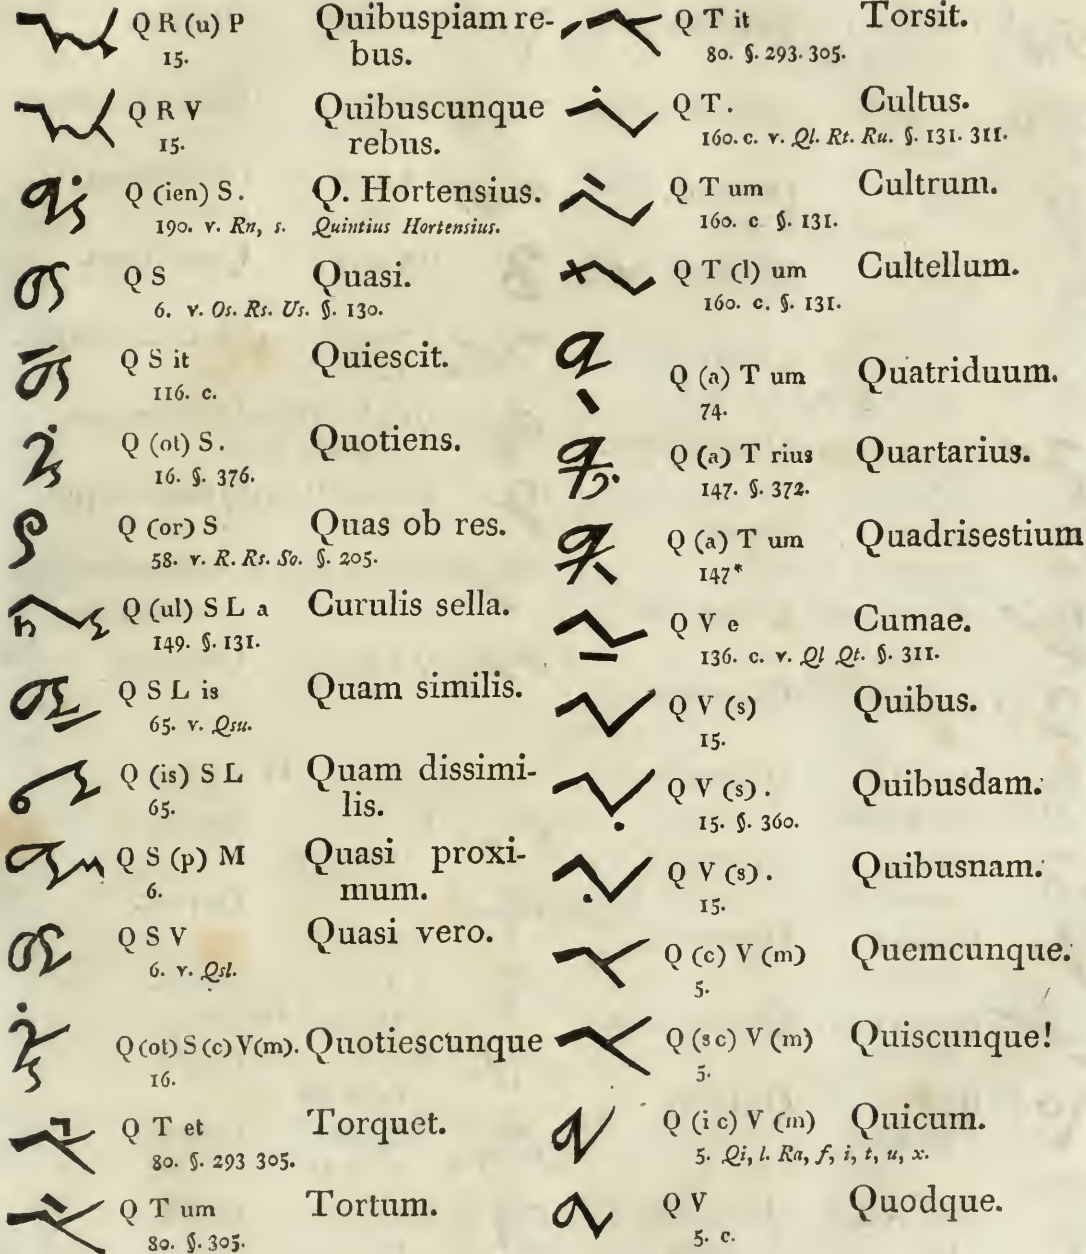 Q R (u) P Quibuspiam re-
15. bus.
Q R V Quibuscunque
15. rebus.
Q (ien) S. Q. Hortensius.
190. v. Rn, s. Quintius Hortensius.
Q S Quasi.
6. v. Os. Rs. Us. §. 130.
Q S it Quiescit.
116. c.
Q (ot) S. Quotiens.
16. §. 376.
Q (or) S Quas ob res.
58. v. R. Rs. So. §. 205.
Q (ul) S L a Curulis sella.
149. §. 131.
Q S L is Quam similis.
65. v. Qsu.
Q (is) S L Quam dissimi-
65. lis.
Q S (p) M Quasi proxi-
6. mum.
Q S V Quasi vero.
6. v. Qsl.
Q (ot) S (c) V(m). Quotiescunque
16.
Q T et Torquet.
80. §. 293 305.
Q T um Tortum.
80. §. 305.
Q T it Torsit.
80. §. 293. 305.
Q T. Cultus.
160. c. v. Ql. Rt. Ru. §. 131. 311.
Q T um Cultrum.
160. c §. 131.
Q T (l) um Cultellum.
160. c. §. 131.
Q (a) T um Quatriduum.
74.
Q (a) T rius Quartarius.
147. §. 372.
Q (a) T um Quadrisestium
147*
Q V e Cumae.
136. c. v. Ql Qt. §. 311.
Q V (s) Quibus.
15.
Q V (s) . Quibusdam.
15. §. 360.
Q V (s) . Quibusnam.
15.
Q (c) V (m) Quemcunque.
5.
Q (s c) V (m) Quiscunque!
5.
Q (i c) V (m) Quicum.
5. Qi, l. Ra, f, i, t, u, x.
Q V Quodque.
5. c.